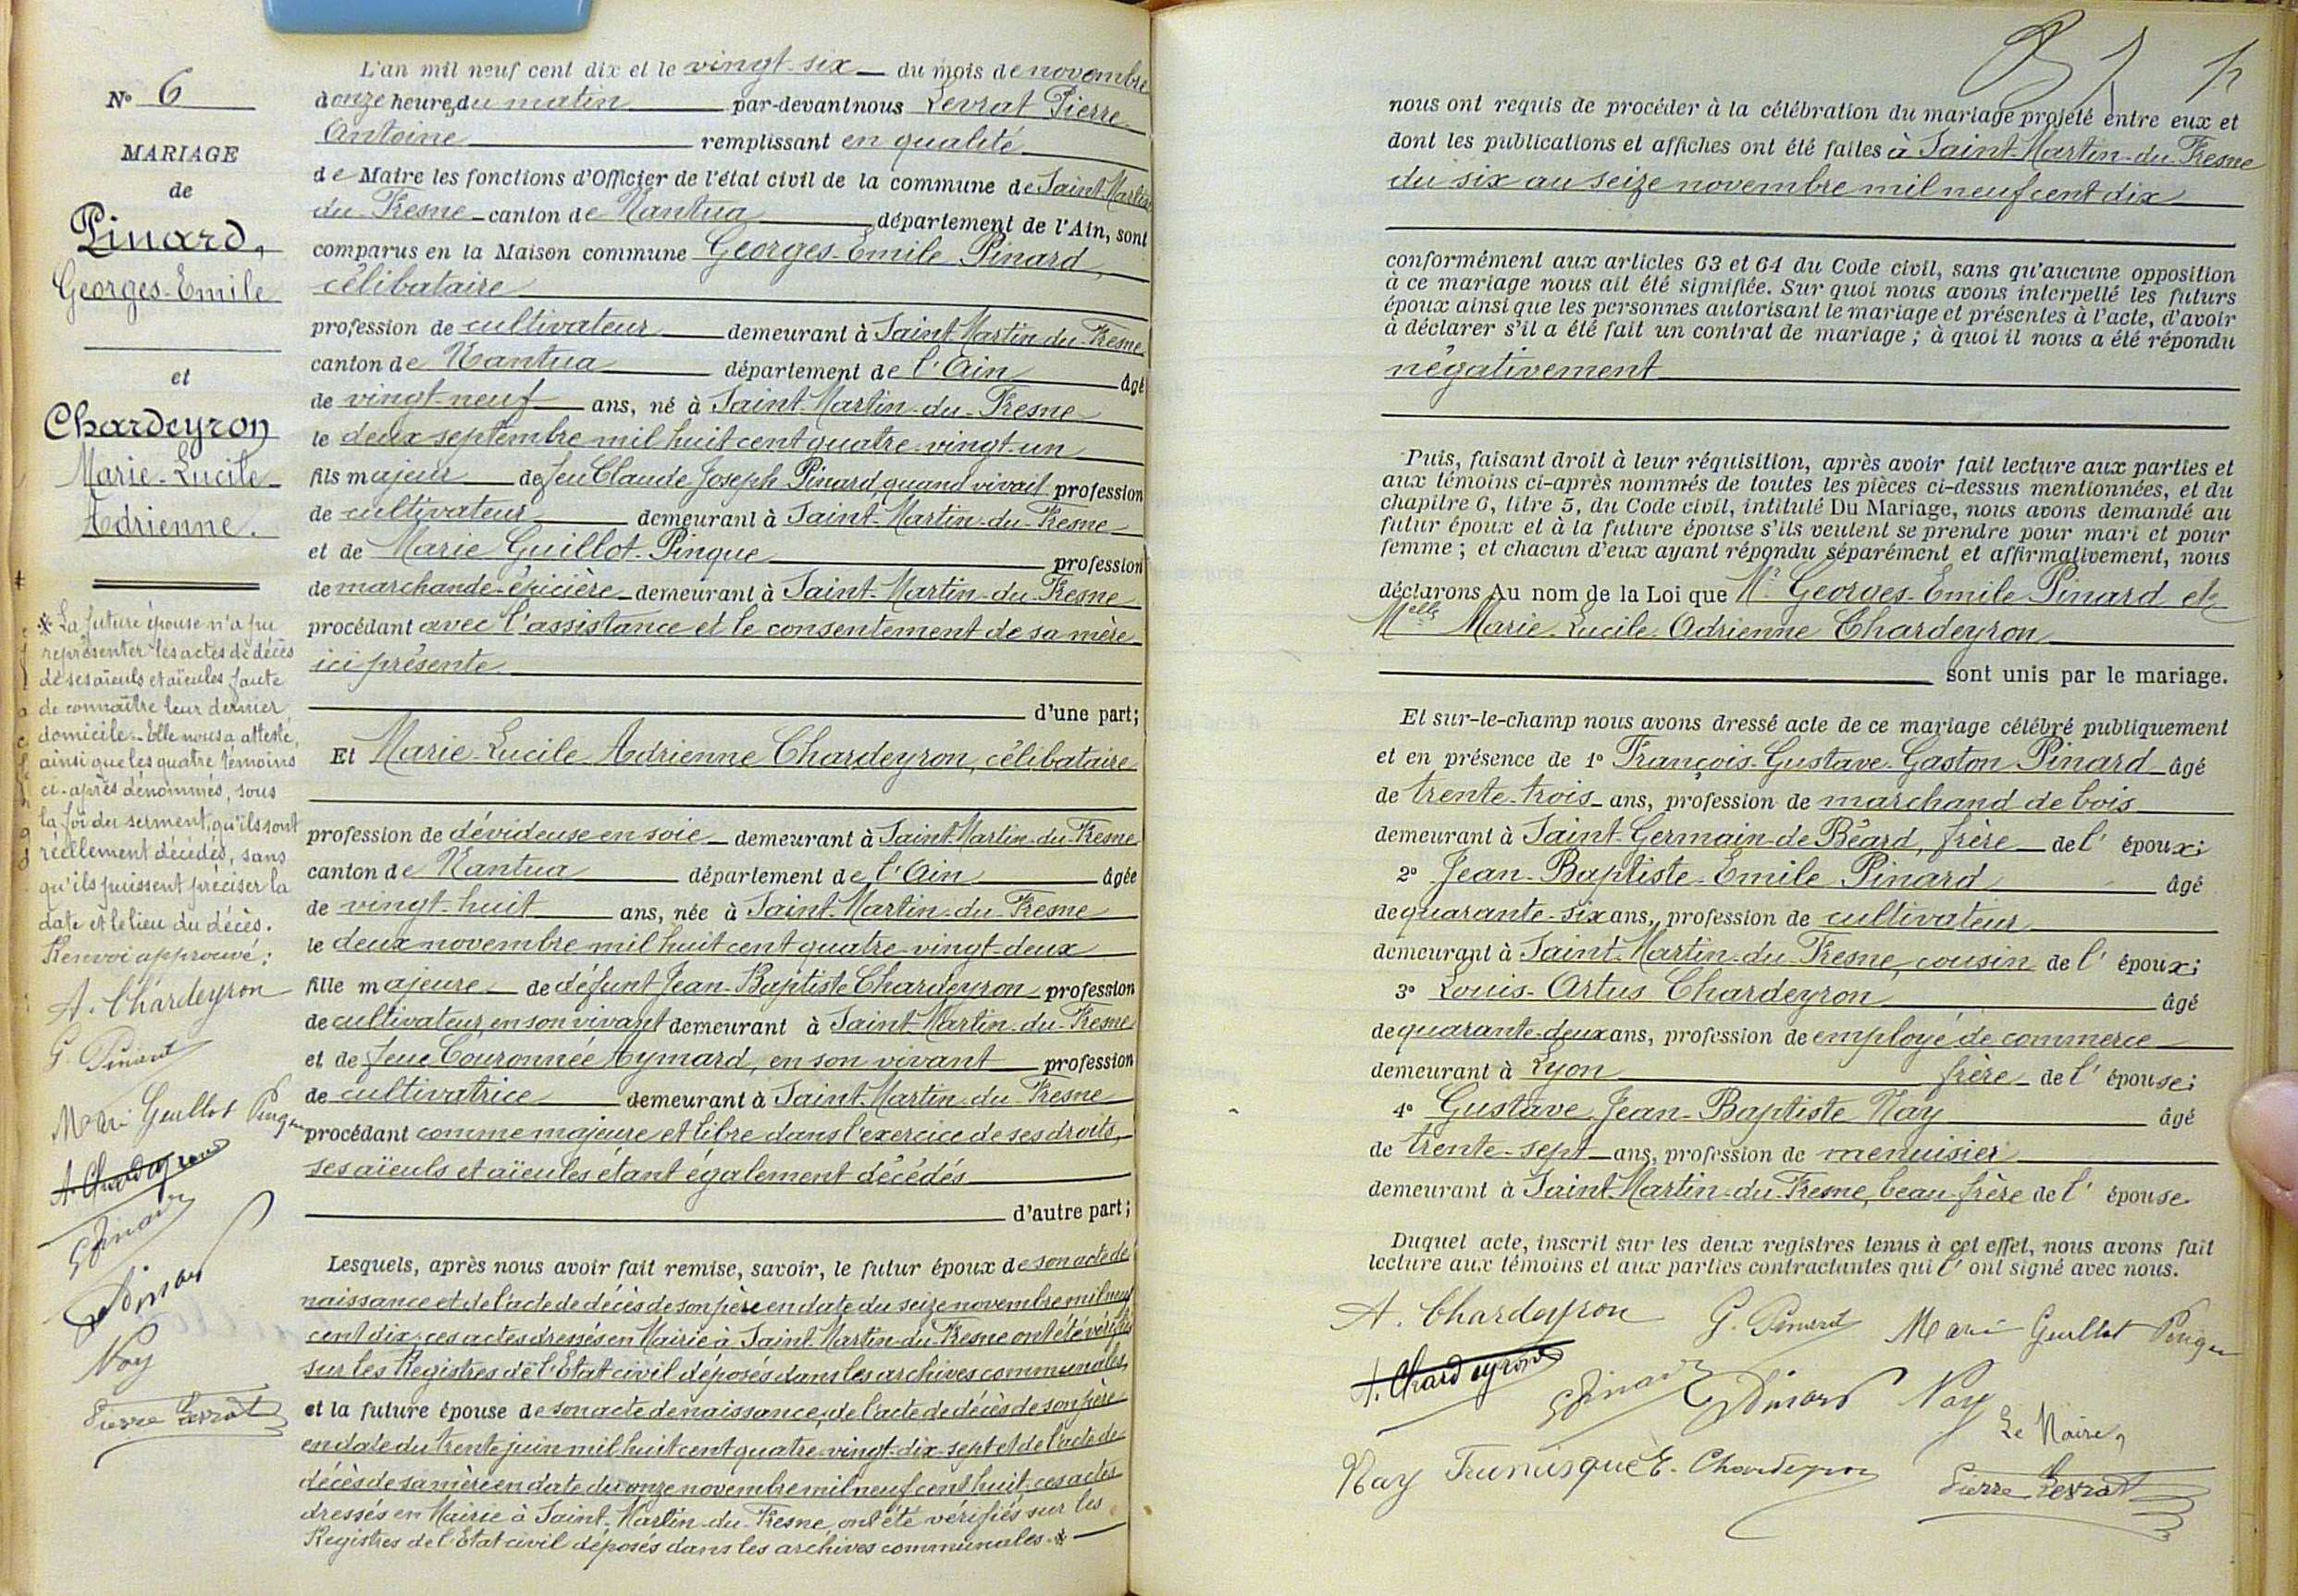 N° 6
MARIAGE
de
Pinard,
Georges-Emile
et
Chardeyron
Marie-Lucile
Adrienne.
* La future épouse n'a pu
représenter les actes de décès
de ses aïeuls et aïeules faute
de connaître leur dernier
domicile. - Elle nous a attesté,
ainsi que les quatre témoins
ci-après dénommés, sous
la foi du serment, qu'ils sont
réellement décédés, sans
qu'ils puissent préciser la
date et le lieu du décès.
Renvoi approuvé:
A. Chardeyron
G. Pinard
Marie Guillot Pingue
A. Chardeyron
G Pinard
Pinard
Nay
Pierre Levrat
L'an mil neuf cent dix et le vingt-six du mois de novembre
à onze heures du matin par-devant nous Levrat Pierre
Antoine remplissant en qualité
de Maire les fonctions d'Officier de l'état civil de la commune de Saint-Martin
du-Fresne canton de Nantua département de l'Ain, sont
comparus en la Maison commune Georges-Emile Pinard,
célibataire
profession de cultivateur demeurant à Saint-Martin-du-Fresne
canton de Nantua département de l'Ain âgé
de vingt-neuf ans, né à Saint-Martin-du-Fresne
le deux septembre mil huit cent quatre-vingt-un
fils majeur de feu Claude Joseph Pinard, quand vivait profession
de cultivateur demeurant à Saint-Martin-du-Fresne
et de Marie Guillot-Pingue profession
de marchande-épicière demeurant à Saint-Martin-du-Fresne
procédant avec l'assistance et le consentement de sa mère
ici présente.
d'une part;
Et Marie-Lucile Adrienne Chardeyron, célibataire
profession de dévideuse en soie demeurant à Saint-Martin-du-Fresne
canton de Nantua département de l'Ain âgée
de vingt-huit ans, née à Saint-Martin-du-Fresne
le deux novembre mil huit cent quatre-vingt-deux
fille majeure de défunt Jean-Baptiste Chardeyron profession
de cultivateur, en son vivant demeurant à Saint-Martin-du-Fresne
et de feue Couronnée Aymard, en son vivant profession
de cultivatrice demeurant à Saint-Martin-du-Fresne
procédant comme majeure et libre dans l'exercice de ses droits,
ses aïeuls et aïeules étant également décédés
d'autre part;
Lesquels, après nous avoir fait remise, savoir, le futur époux de son acte de
naissance et de l'acte de décès de son père en date du seize novembre mil neuf
cent dix; ces actes dressés en Mairie à Saint-Martin-du-Fresne ont été vérifiés
sur les Registres de l'Etat civil déposés dans les archives communales,
et la future épouse de son acte de naissance, de l'acte de décès de son père
en date du trente juin mil huit cent quatre-vingt-dix-sept et de l'acte de
décès de sa mère en date du onze novembre mil neuf cent huit; ces actes
dressés en Mairie à Saint-Martin-du-Fresne, ont été vérifiés sur les
Registres de l'Etat civil déposés dans les archives communales. *
nous ont requis de procéder à la célébration du mariage projeté entre eux et
dont les publications et affiches ont été faites à Saint-Martin-du-Fresne
du six au seize novembre mil neuf cent dix
conformément aux articles 63 et 64 du Code civil, sans qu'aucune opposition
à ce mariage nous ait été signifiée. Sur quoi nous avons interpellé les futurs
époux ainsi que les personnes autorisant le mariage et présentes à l'acte, d'avoir
à déclarer s'il a été fait un contrat de mariage; à quoi il nous a été répondu
négativement
Puis, faisant droit à leur réquisition, après avoir fait lecture aux parties et
aux témoins ci-après nommés de toutes les pièces ci-dessus mentionnées, et du
chapitre 6, titre 5, du Code civil, intitulé Du Mariage, nous avons demandé au
futur époux et à la future épouse s'ils veulent se prendre pour mari et pour
femme; et chacun d'eux ayant répondu séparément et affirmativement, nous
déclarons Au nom de la Loi que Mr Georges-Emile Pinard et
Melle Marie-Lucile-Adrienne Chardeyron
sont unis par le mariage.
Et sur-le-champ nous avons dressé acte de ce mariage célébré publiquement
et en présence de 1° François-Gustave-Gaston Pinard âgé
de trente-trois ans, profession de marchand de bois
demeurant à Saint-Germain-de-Béard, frère de l'époux;
2° Jean-Baptiste-Emile Pinard âgé
de quarante-six ans, profession de cultivateur
demeurant à Saint-Martin-du-Fresne, cousin de l'époux;
3° Louis-Artus Chardeyron âgé
de quarante-deux ans, profession de employé de commerce
demeurant à Lyon frère de l'épouse;
4° Gustave Jean-Baptiste Nay âgé
de trente-sept ans, profession de menuisier
demeurant à Saint-Martin-du-Fresne, beau-frère de l'épouse.
Duquel acte, inscrit sur les deux registres tenus à cet effet, nous avons fait
lecture aux témoins et aux parties contractantes qui l'ont signé avec nous.
A. Chardeyron G. Pinard Marie Guillot Pingue
A. Chardeyron G Pinard Pinard Nay
Le Maire,
Nay E. Chardeyron Pierre Levrat